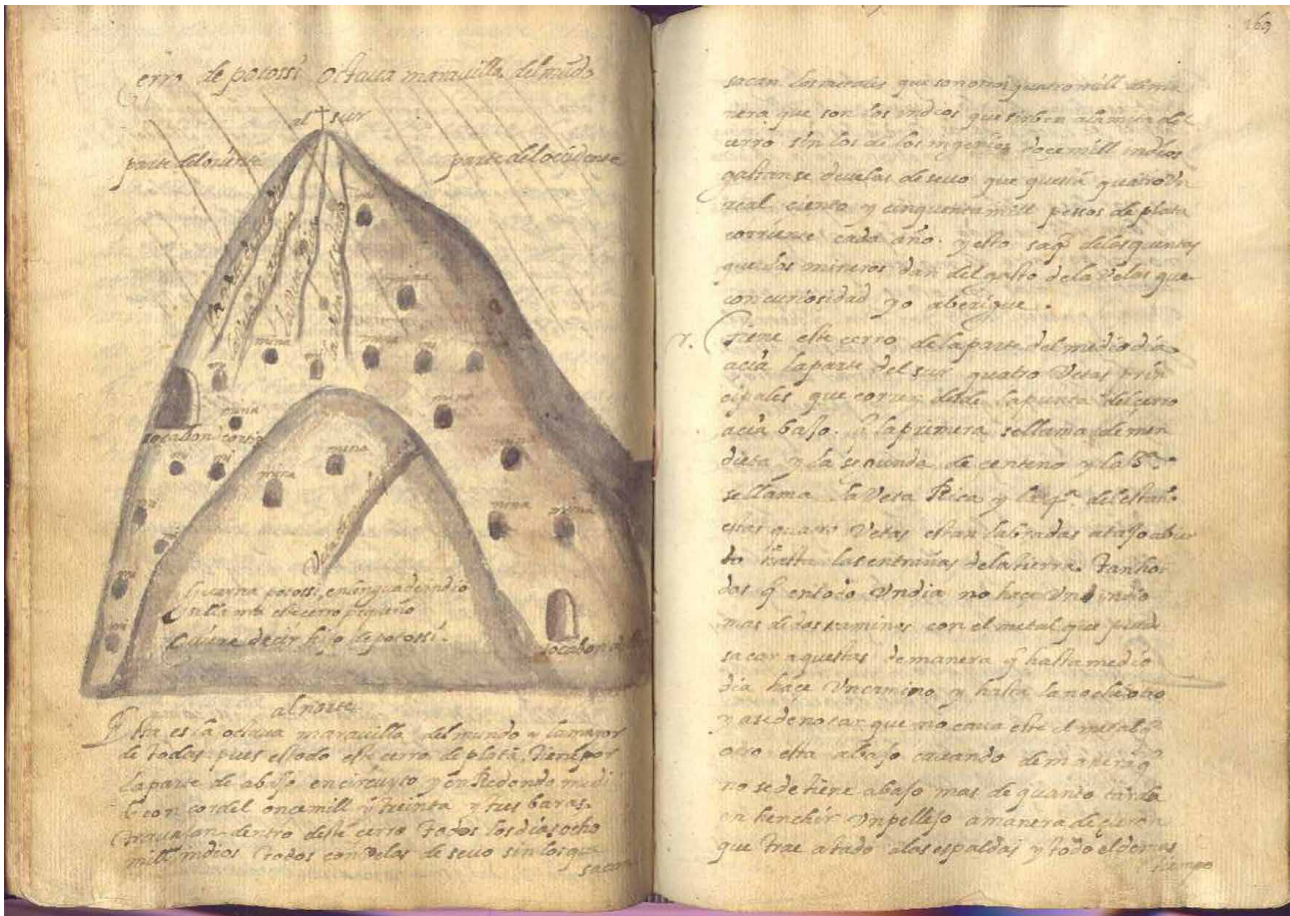 Cerro de potossi octaua maravilla del mũdo
al sur
parte del oriente
parte del occidente
mina
mina
mina
mi
mina
mi
mi
mi
mina
mina
socabon
mi
mi
mina
mina
mina
mi
mina
mina
mi
mi
Veta
Guaina potossi, en lengua de indio
llama este cerro pequeño
quiere decir hijo de potossi.
socabon
al norte
Esta es la octaua maravilla del mundo y la mayor
de todas pues es todo este cerro de plata. Tiene por
la parte de abajo en circuyto y en Redondo medi
le con cordel once mill y treinta y tres baras.
travajan dentro deste cerro todos los dias ocho
mill indios todos con velas de sevo sin los que
sacan
169
sacan los metales que son otros quatro mill de ma
nera que son los indios que suben a la mita del
cerro sin los de los ingenios doce mill indios
gastanse de velas de sevo que questã quatro Vn
real ciento y cinquenta mill pessos de plata
corriente cada año. y esto saq̃ de las quentas
que los mineros dan del gasto de la Velas que
con curiosidad yo aberigue.
Tiene este cerro de la parte del medio dia
acia la parte del sur quatro Vetas prin
cipales que corren desde la punta del cerro
acia bajo. la primera se llama de men
dieta y la segunda de centeno y la 3ª
se llama la Veta Rica y la qª del estaño
estas quatro Vetas estan labradas a tajo abier
to hasta las entrañas de la tierra. tan hon
das q̃ en todo Vn dia no hace Vn indio
mas de dos caminos con el metal que puede
sacar a questas de manera q̃ hasta medio
dia hace Vn camino y hasta la noche otro
y ase de notar que no caua este el metal q̃
otro esta abajo cauando de manera q̃
no se detiene abajo mas de quanto tarda
en henchir Vn pellejo a manera de çurron
que trae atado a las espaldas y todo el demas
tiempo